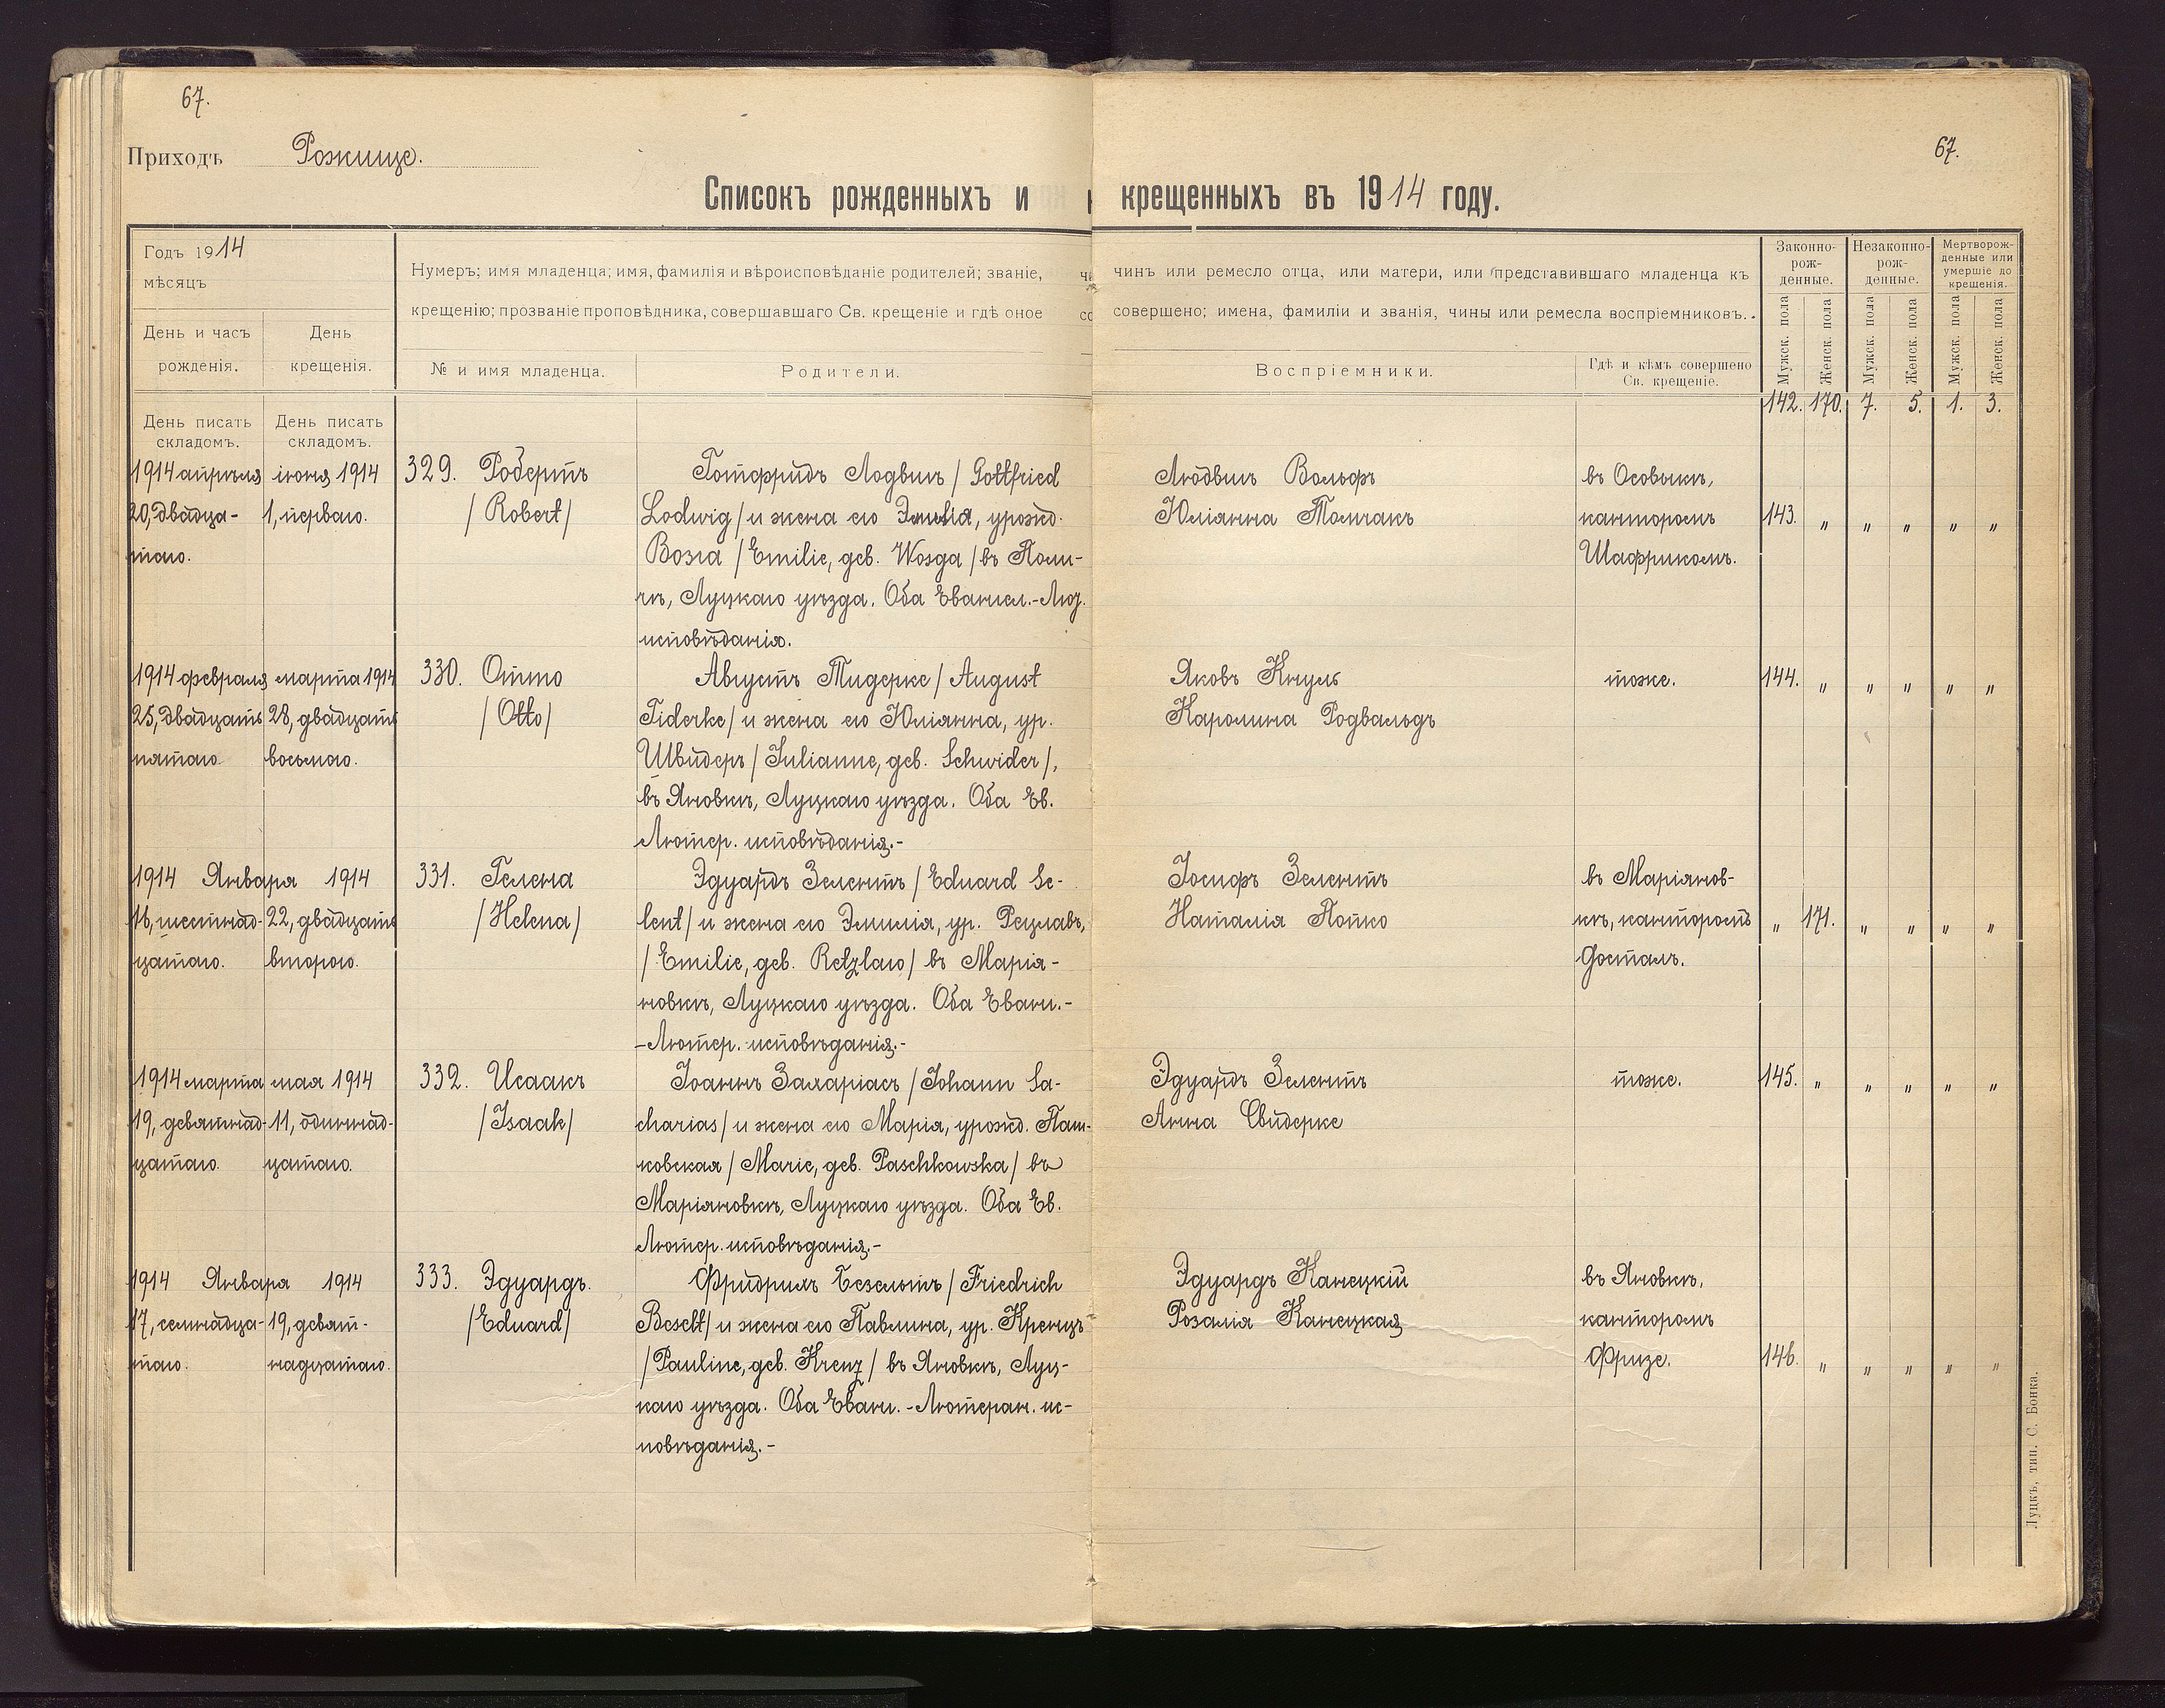 67.
67.
Приходъ Рожище.
Списокъ рожденныхъ и крещенныхъ въ 1914 году.
Годъ 1914
мѣсяцъ
День и часъ
рожденія.
День
крещенія.
Нумеръ; имя младенца; имя, фамилія и вѣроисповѣданіе родителей; званіе, чинъ или ремесло отца, или матери, или представившаго младенца къ
крещенію; прозваніе проповѣдника, совершавшаго Св. крещеніе и гдѣ оное совершено; имена, фамиліи и званія, чины или ремесла воспріемниковъ.
№ и имя младенца.
Родители.
Воспріемники.
Гдѣ и кѣмъ совершено
Св. крещеніе.
Законно-
рож-
денные.
Незаконно-
рож-
денные.
Мертворож-
денные или
умершіе до
крещенія.
Мужск. пола
Женск. пола
Мужск. пола
Женск. пола
Мужск. пола
Женск. пола
День писать
складомъ.
День писать
складомъ.
142. 170. 7. 5. 1. 3.
1914 апрѣля
20, двадца-
таго.
іюня 1914
1, перваго.
329. Робертъ
/Robert/
Готфридъ Лодвигъ /Gottfried
Lodwig/ и жена его Эмилія, урожд.
Возга /Emilie, geb. Wosga/ въ Поли-
чѣ, Луцкаго уѣзда. Оба Евангел.-Лют.
исповѣданія.
Людвигъ Вольфъ
Юліанна Толчакъ
въ Осовыкѣ,
канторомъ
Шафрикомъ.
143. " " " " "
1914 февраля
25, двадцать
пятаго.
марта 1914
28, двадцать
восьмаго.
330. Отто
/Otto/
Августъ Тидерке /August
Tiderke/ и жена его Юліанна, ур.
Швидеръ /Julianne, geb. Schwider/,
въ Яновкѣ, Луцкаго уѣзда. Оба Ев.
Лютер. исповѣданія.-
Яковъ Кнуль
Каролина Родвальдъ
тоже.
144. " " " " "
1914 Января 1914
16, шестнад-
цатаго.
22, двадцать
второго.
331. Гелена
/Helena/
Эдуардъ Зелентъ /Eduard Se-
lent/ и жена его Эмилія, ур. Рецлавъ,
/Emilie, geb. Retzlaw/ въ Марія-
новкѣ, Луцкаго уѣзда. Оба Еванг.-
-Лютер. исповѣданія.-
Іосифъ Зелентъ
Наталія Потко
въ Маріянов-
кѣ, канторомъ
Досталъ.
" 171. " " " "
1914 марта
19, девятнад-
цатаго.
мая 1914
11, одиннад-
цатаго.
332. Исаакъ
/Isaak/
Іоаннъ Захаріасъ /Johann Sa-
charias/ и жена его Марія, урожд. Паш-
ковская /Marie, geb. Paschkowska/ въ
Маріяновкѣ, Луцкаго уѣзда. Оба Ев.
Лютер. исповѣданія.-
Эдуардъ Зелентъ
Анна Свидерке
тоже.
145. " " " " "
1914 Января 1914
17, семнадца-
таго.
19, девят-
надцатаго.
333. Эдуардъ.
/Eduard/
Фридрихъ Безельтъ /Friedrich
Beselt/ и жена его Павлина, ур. Кренцъ
/Pauline, geb. Krenz/ въ Яновкѣ, Луц-
каго уѣзда. Оба Еванг.-Лютеран. ис-
повѣданія.-
Эдуардъ Канецкій
Розалія Канецкая
въ Яновкѣ,
канторомъ
Фризе.
146. " " " " "
Луцкъ, тип. С. Бонка.